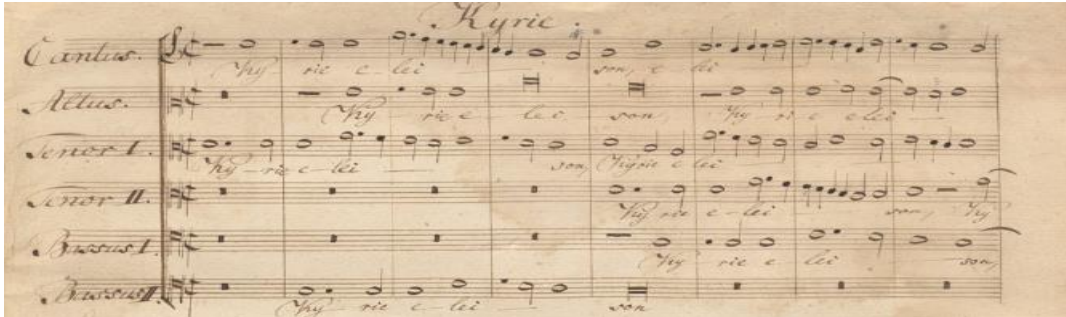 Kyrie.
Cantus.
Ky - rie e - lei - son, e - lei -
Altus.
Ky - rie e - lei - son, Ky - ri e elei -
Tenor I.
Ky - rie e - lei - son, Kyrie e lei
Tenor II.
Ky - rie e - lei - son, Ky
Bassus I.
Ky rie e - lei - son,
Bassus II.
Ky - rie e - lei - son